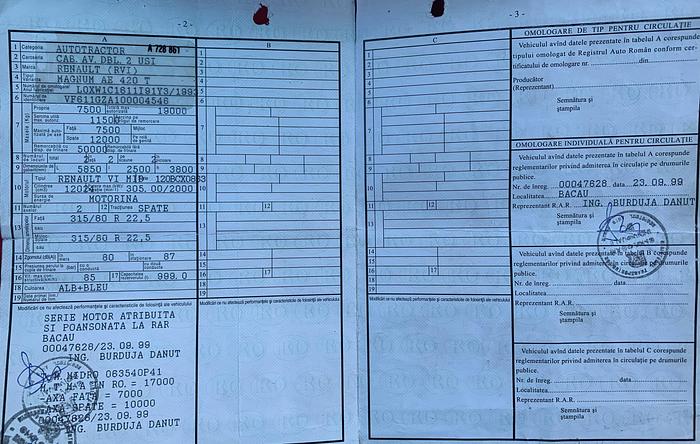 - 2 -
A
1 Categoria AUTOTRACTOR A 728 861
2 Caroseria CAB. AV. DBL. 2 USI
3 Marca RENAULT (RVI)
4 Tipul Varianta MAGNUM AE 420 T
5 Numărul de omologare
6 VF611GZA100004546
Proprie 7500 19000
11500
Față 7500 Mijloc
Spate 12000
50000
8 total 2 2 2
9 L 5850 l 2500 h 3800
10 Tipul RENAULT VI MID
305.00/2000
MOTORINA
11 2 12 Tracțiunea SPATE
13 Față 315/80 R 22,5
sau
315/80 R 22.5
sau
14 Zgomotul (dB(A)) 80 87
15
16 85 17 Capacitatea rezervorului 999,0
18 Culoarea ALB+BLEU
19
Modificări ce nu afectează performanțele și caracteristicile de folosință ale vehiculului
SERIE MOTOR ATRIBUITA
SI POANSONATA LA RAR
BACAU
00047628/23.09.99
ING. BURDUJA DANUT
HIDRO 063540P41
M.T.M.A IN RO. = 17000
-AXA FATA = 7000
-AXA SPATE = 10000
00047628/23.09.99
ING. BURDUJA DANUT
B
1
2
3
4
5
6
7
8
9
10
11 12
13
14
15
16 17
18
19
Modificări ce nu afectează performanțele și caracteristicile de folosință ale vehiculului
- 3 -
C
1
2
3
4
5
6
7
8
9
10
11 12
13
14
15
16 17
18
19
Modificări ce nu afectează performanțele și caracteristicile de folosință ale vehiculului
OMOLOGARE DE TIP PENTRU CIRCULAȚIE
Vehiculul avînd datele prezentate în tabelul A corespunde
tipului omologat de Registrul Auto Român conform cer-
tificatului de omologare nr. din
Producător
(Reprezentant)
Semnătura și
ștampila
OMOLOGARE INDIVIDUALĂ PENTRU CIRCULAȚIE
Vehiculul avînd datele prezentate în tabelul A corespunde
reglementarilor privind admiterea în circulație pe drumurile
publice.
Nr. de înreg. 00047628 data 23.09.99
Localitatea BACAU
Reprezentant R.A.R. ING. BURDUJA DANUT
Semnătura și
ștampila
Vehiculul avînd datele prezentate în tabelul B corespunde
reglementarilor privind admiterea în circulație pe drumurile
publice.
Nr. de înreg. data
Localitatea
Reprezentant R.A.R.
Semnătura și
ștampila
Vehiculul avînd datele prezentate în tabelul C corespunde
reglementarilor privind admiterea în circulație pe drumurile
publice.
Nr. de înreg. data
Localitatea
Reprezentant R.A.R.
Semnătura și
ștampila